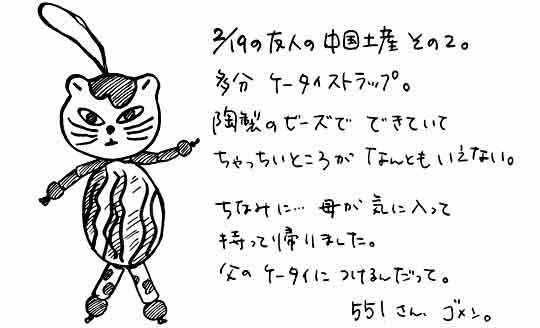 2/19の友人の中国土産 その2。
多分 ケータイストラップ。
陶製のビーズで できていて
ちゃっちいところが なんともいえない。
ちなみに… 母が 気に入って
持って帰りました。
父の ケータイに つけるんだって。
551さん、ゴメン。